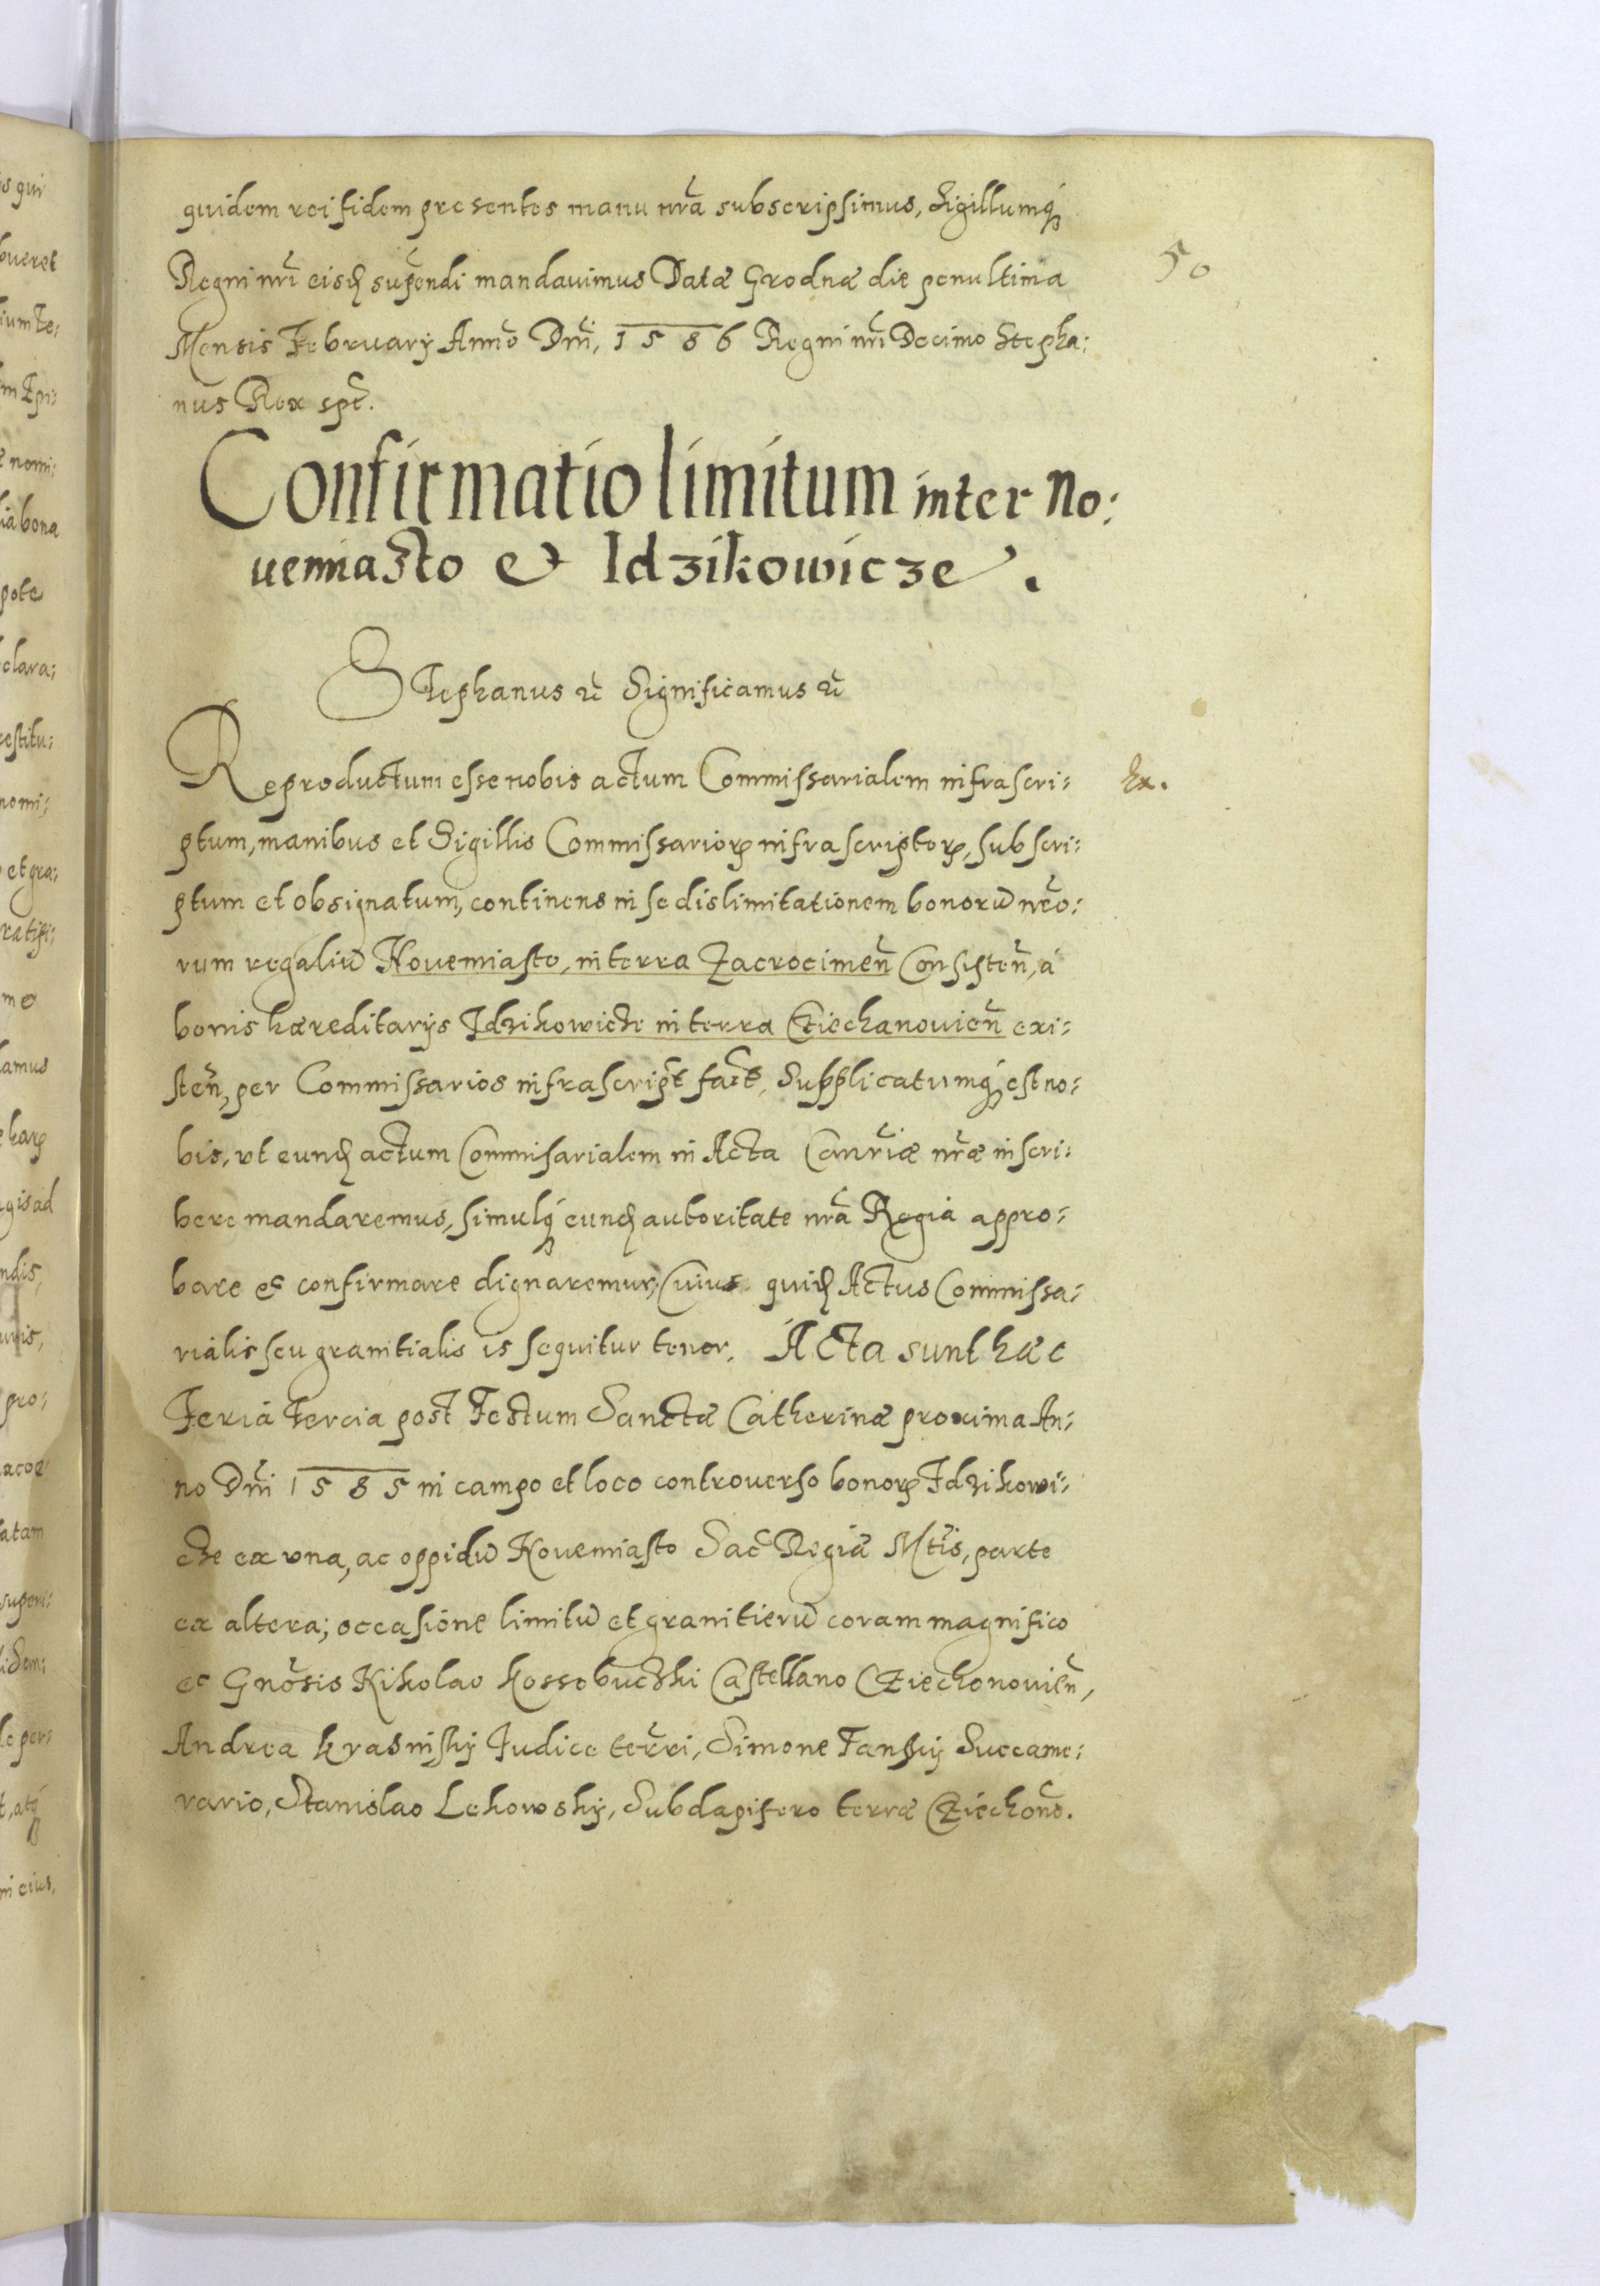 quidem rei fidem presentes manu nr̃a subscripsimus, Sigillumq́ꝫ
50
Regni nr̃i eisd̃ suṕendi mandauimus Datæ Grodnæ die penultima
Mensis February Anno Dñi, 1586 Regni nr̃i Decimo Stepha:
nus Rex spt̃.
Confirmatio limitum inter No:
uemiasto et Idzikowicze.
Stephanus ꝛc̃ Significamus ꝛc̃
Reproductum esse nobis actum Commissarialem infrascri:
Ex.
ptum, manibus et Sigillis Commissarioꝝ infrascriptoꝝ, subscri:
ptum et obsignatum, continens in se dislimitationem bonorũ nr̃o:
rum regaliũ Nouemiasto, in terra Zacrocimeñ Consisteñ, à
bonis hæreditarÿs Idzikowicze in terra Cziechanovieñ exi:
steñ, per Commissarios infrascript̃ fact̃, Supplicatumq́ꝫ est no:
bis, vt eund̃ actum Commissarialem in Acta Canc̃riæ nr̃æ inscri:
bere mandaremus, simulq́ꝫ eund̃ autoritate nr̃a Regia appro:
bare et confirmare dignaremur, Cuius quid̃ Actus Commissa:
rialis seu granitialis is sequitur tenor. Acta sunt hæc
Feria Tercia post Festum Sanctæ Catherinæ proxima An:
no Dñi 1585 in campo et loco controuerso bonoꝝ Idzikowi:
cze ex vna, ac oppidũ Nouemiasto Sac̃ Regiæ Mt̃is, parte
ex altera; occasione limitũ et granitierũ coram magnifico
et Gnõsis Nikolao Kossobuczki Castellano Cziechonovieñ,
Andrea Krasnisky Iudice terr̃i, Simone Fansky Succame:
rario, Stanislao Lekowsky, Subdapifero terræ Cziechoñs.